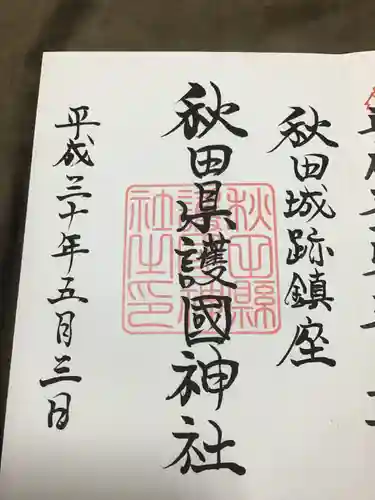 秋田城跡鎮座
秋田県護國神社
平成三十年五月三日
秋田縣
護國神
社之印